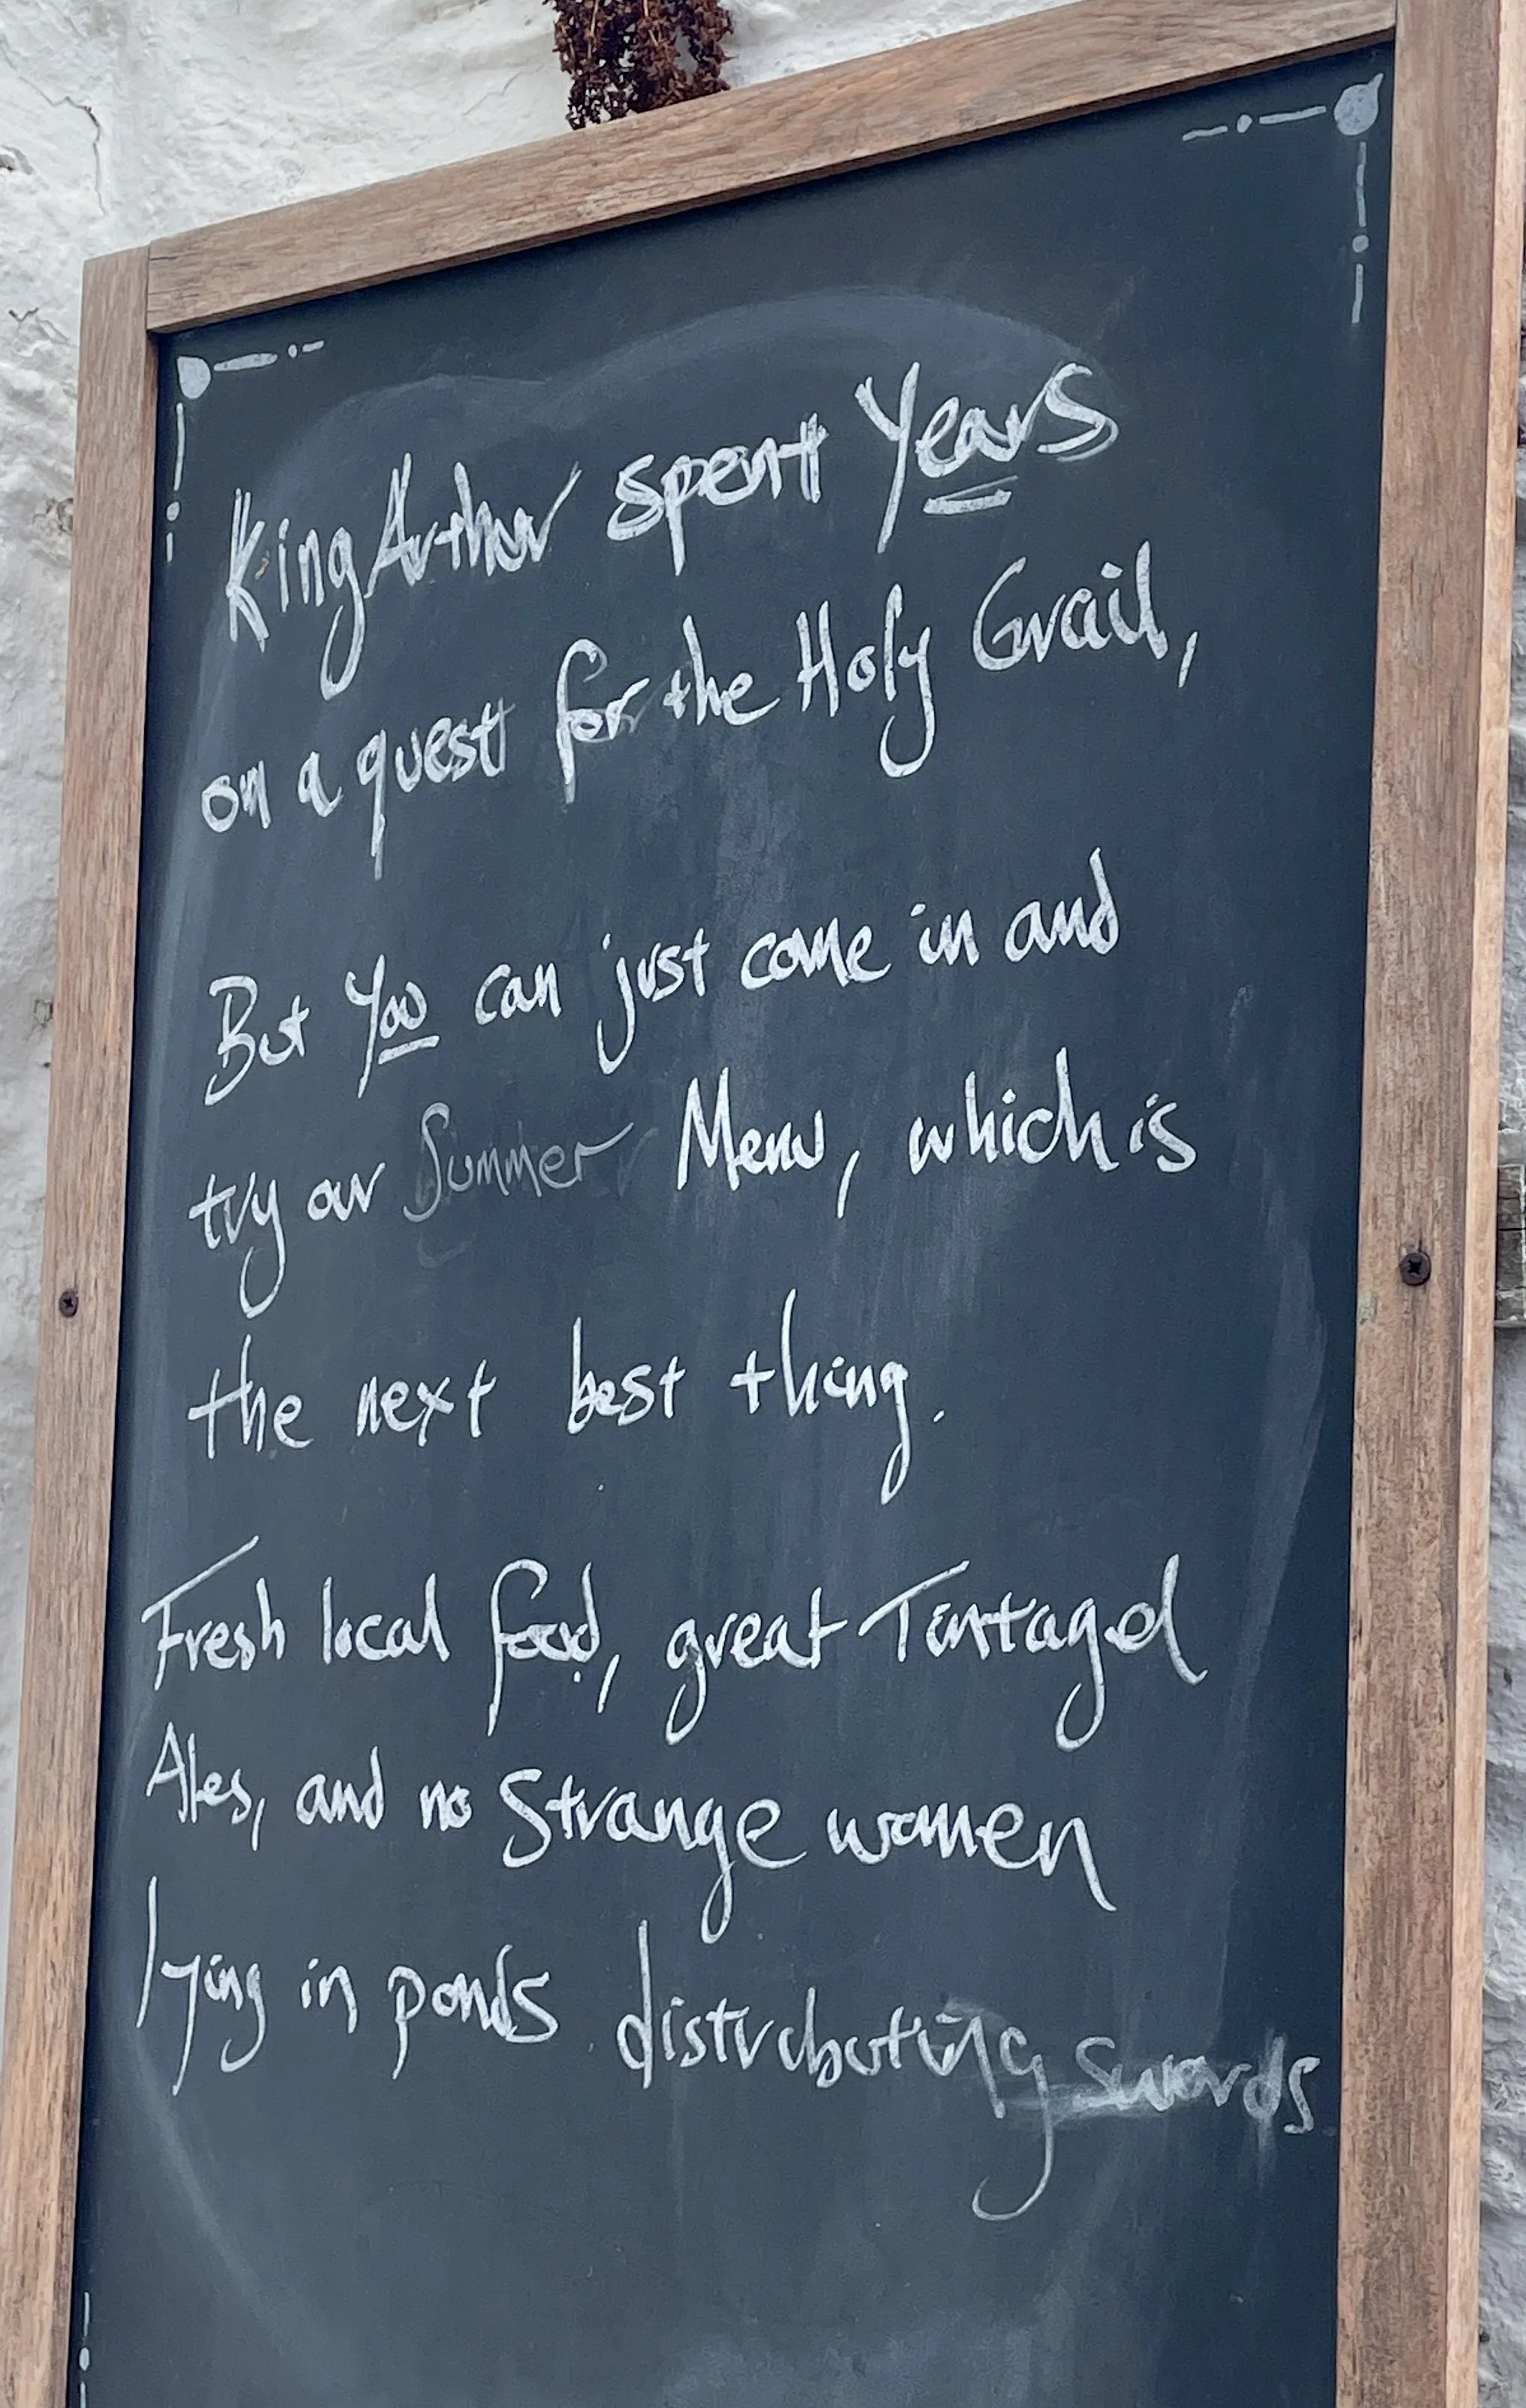 King Arthur spent Years
on a quest for the Holy Grail,
But You can just come in and
try our Summer Menu, which is
the next best thing.
Fresh local food, great Tintagel
Ales, and no Strange women
lying in ponds distributing swords